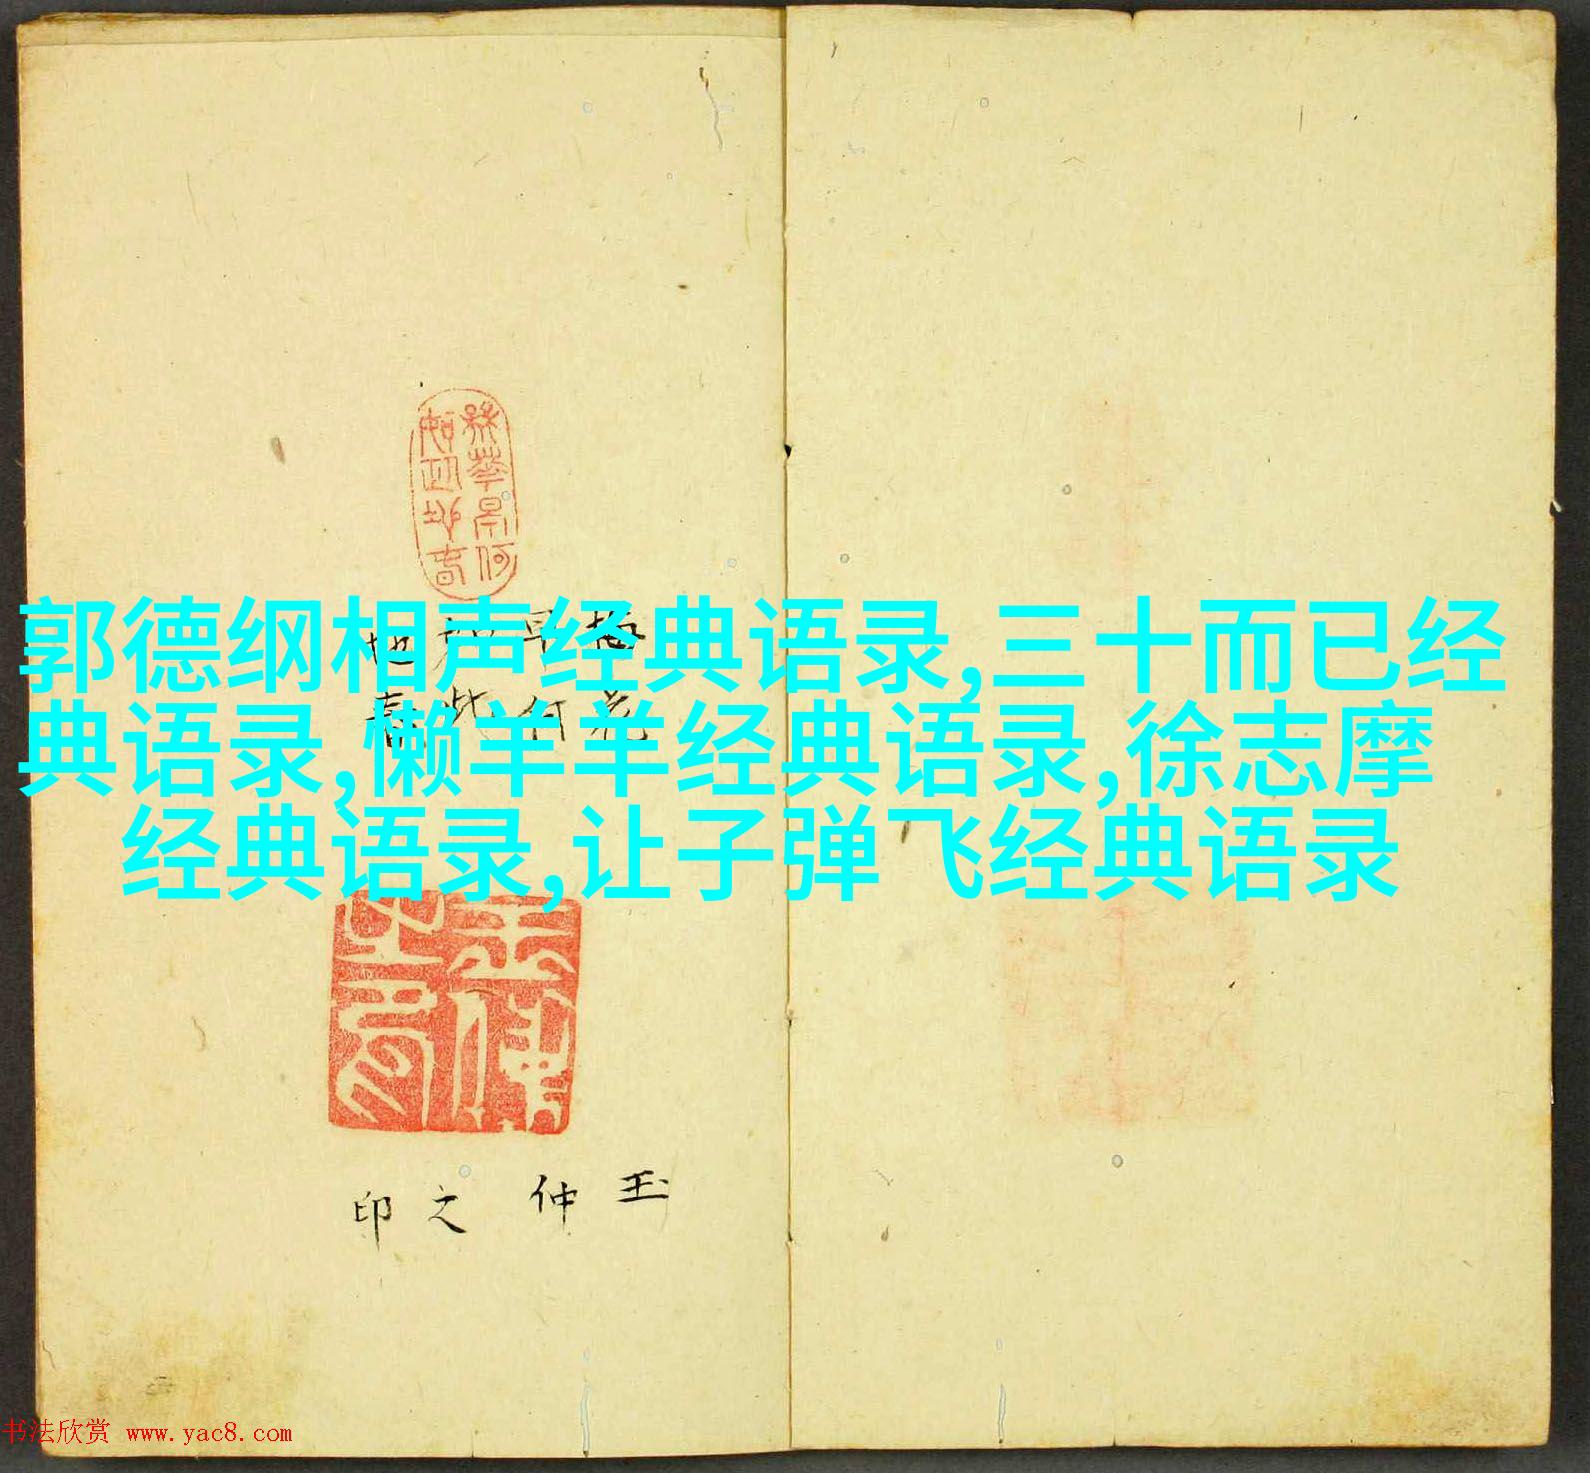 郭德纲相声经典语录,三十而已经
典语录,懒羊羊经典语录,徐志摩
经典语录,让子弹飞经典语录
玉仲之印
书法欣赏 www.yac8.com